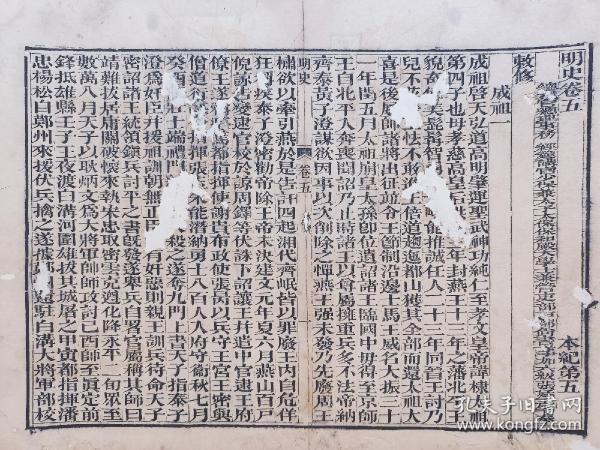 明史卷五
敕修
本紀第五
成祖一
成祖啟天弘道高明肇運聖武神功純仁至孝文皇帝諱棣太祖
第四子也母孝慈高皇后年封燕王十三年之藩北平王
貌奇美髭髯智略能推誠任人二十三年同晉王討乃
兒不怯不敢進王倍道趨迤都山獲其全部而還太祖大
喜是後屢帥諸將出征並令王節制沿邊士馬王威名大振三十
一年閏五月太祖崩皇太孫即位遺詔諸王臨國中毋得至京師
王自北平入奔喪聞詔乃止時諸王以尊屬擁重兵多不法帝納
齊泰黃子澄謀欲因事以次削除之憚燕王强未發乃先廢周王
明史 卷五
橚欲以牽引燕於是告訐四起湘代齊岷皆以罪廢王內自危佯
狂疾泰子澄密勸帝除王帝未決建文元年夏六月燕山百戶
倪諒告變逮官校於諒周鐸等伏誅下詔讓王並遣中官逮王府
僚王遂都指揮使謝貴布政使張昺以兵守王宮王密與
僧道衍指揮張朱能潛納勇士八百人入府守衛秋七月
癸酉壯士端禮門殺之遂奪九門上書天子指泰子
澄為奸臣並援祖訓朝無正臣有奸惡則親王訓兵待命天子
密詔諸王統領鎮兵討平之書既發遂舉兵自署官屬稱其師曰
靖難拔居庸關破懷來執宋忠取密雲克遵化降永平二旬眾至
數萬八月天子以耿炳文為大將軍帥師致討己酉師至真定前
鋒抵雄縣壬子王夜渡白溝河圍雄拔其城屠之甲寅都指揮潘
忠楊松自鄚州來援伏兵擒之遂據還駐白溝大將軍部校
孔夫子旧书网